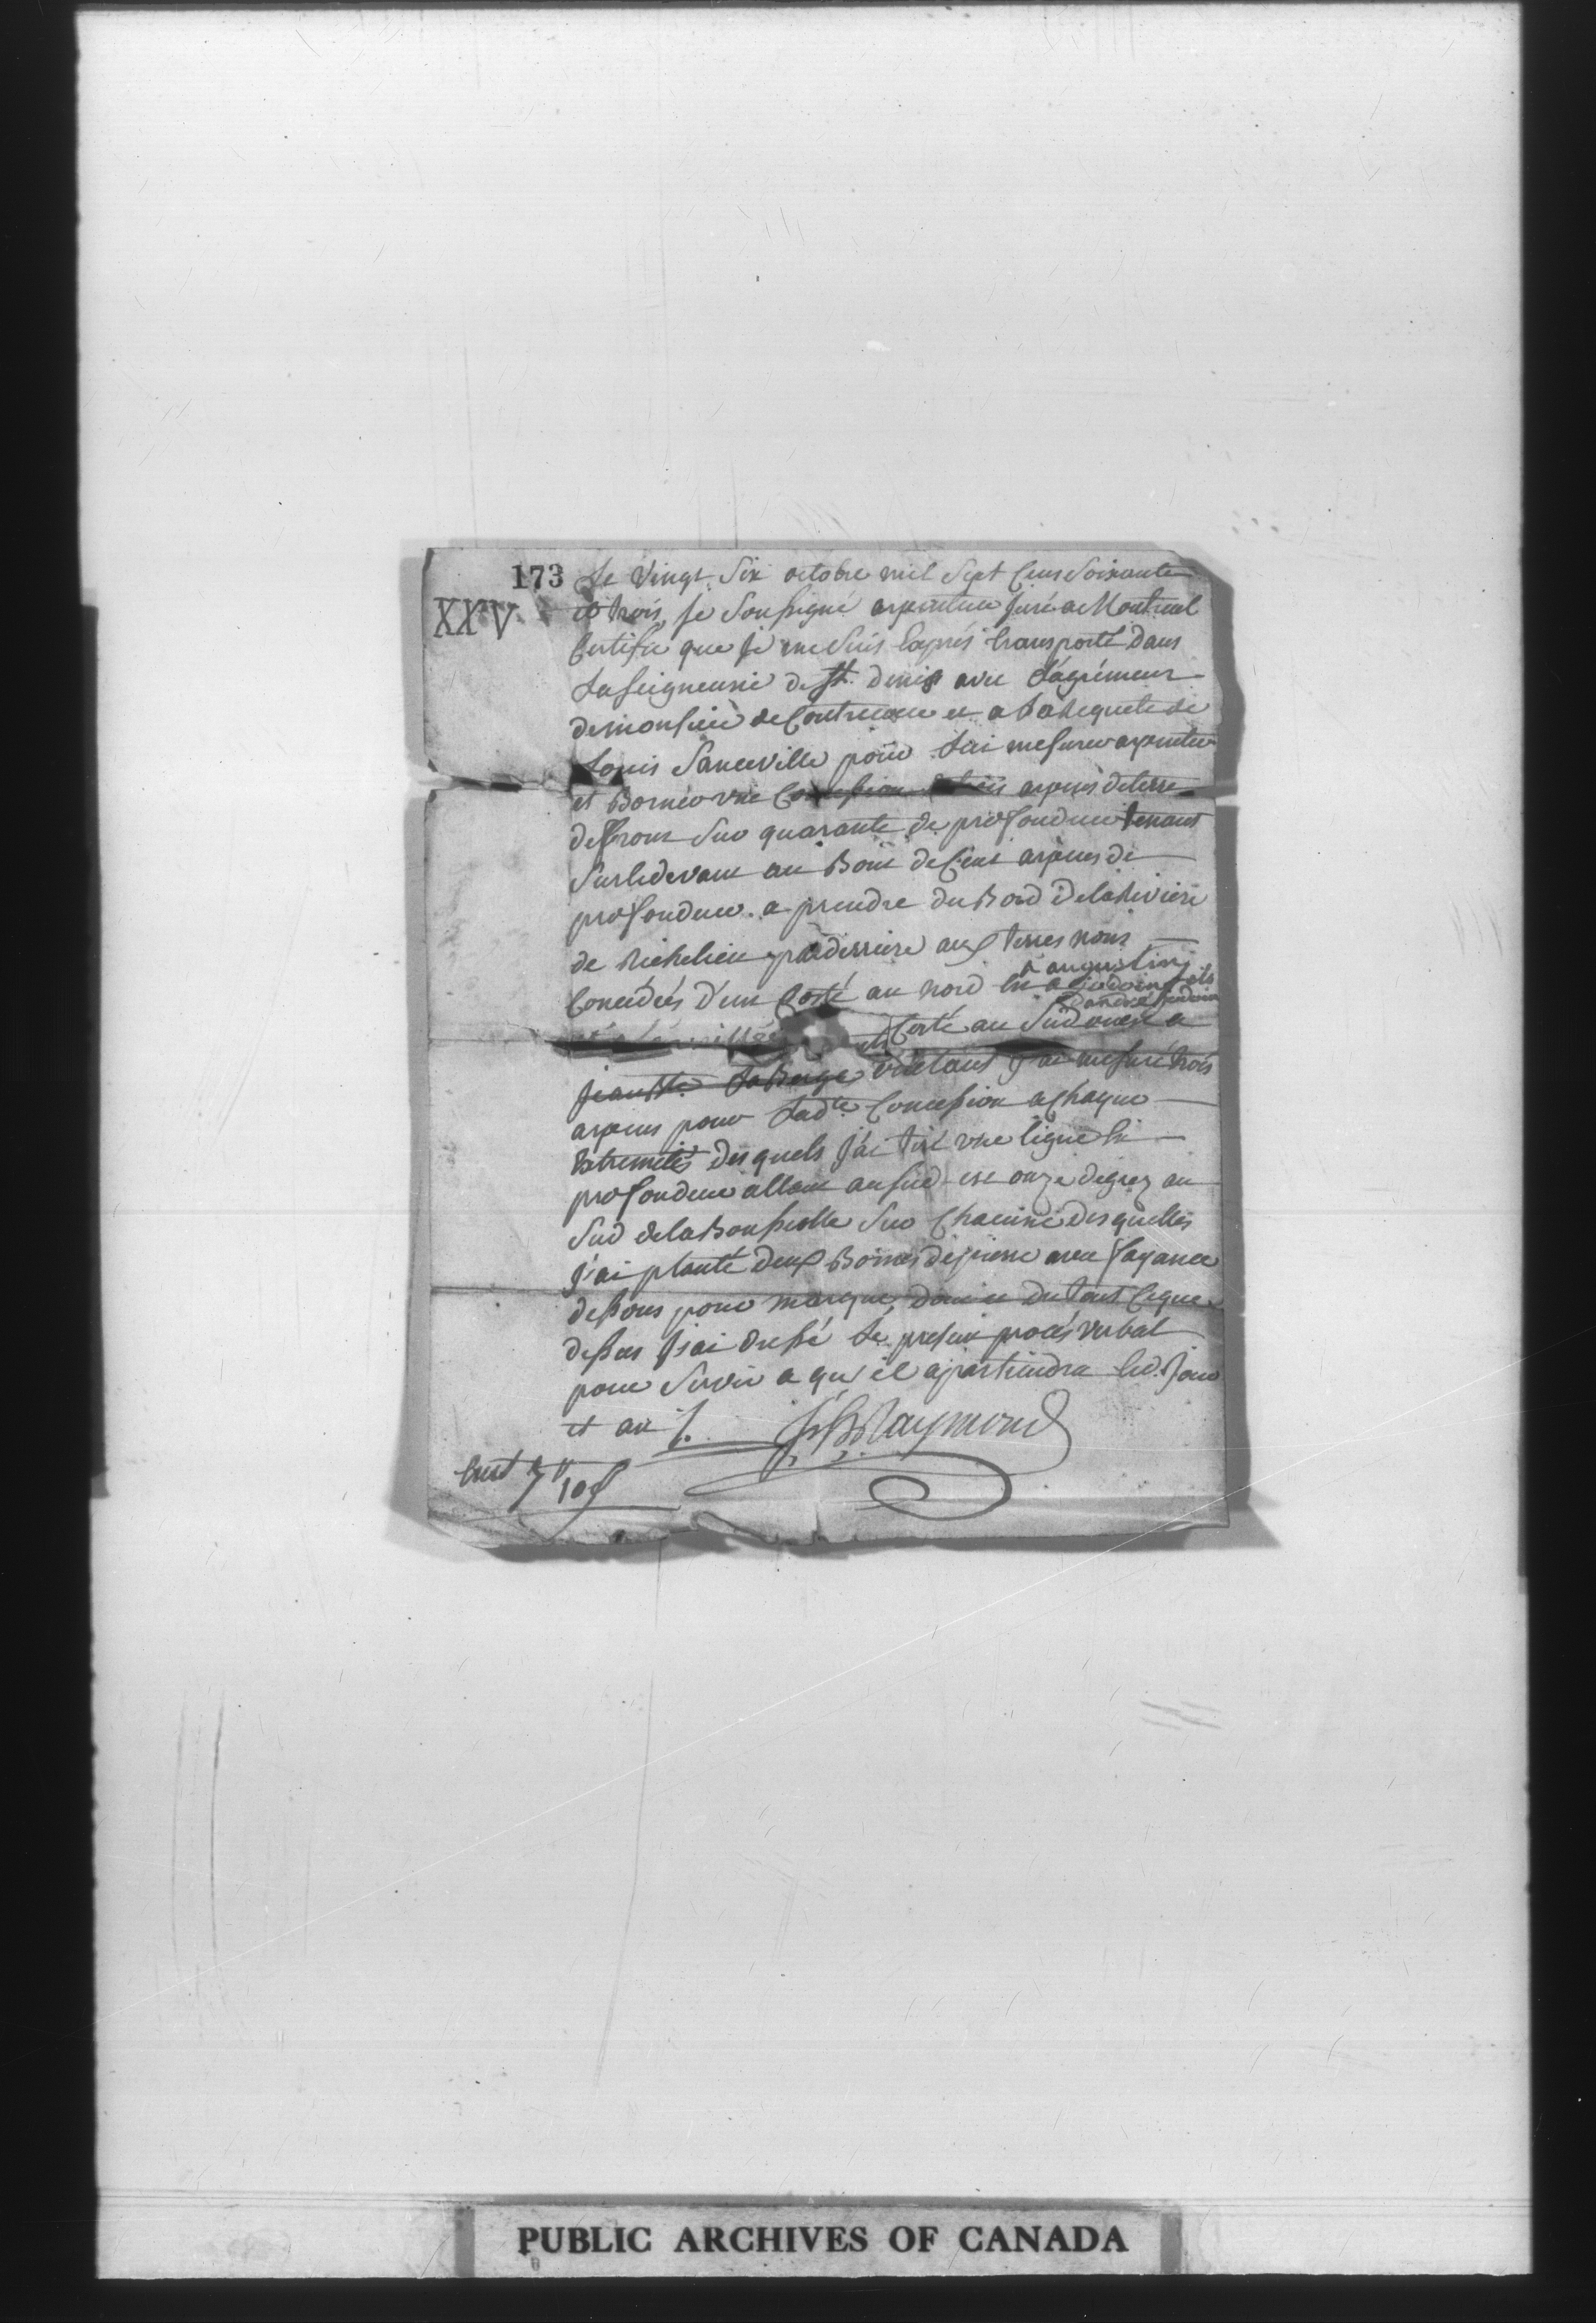 173 Le Vingt Six octobre mil Sept Cens Soixante
XXV et trois, je Soussigné arpenteur Juré a Montreal
Certifie que je me Suis Exprés transporté dans
La seigneurie de St. denis avec L'agrément
de monsieur de Contrecoeur et a La Requete de
Louis Sanceville pour Lui mesurer arpenter
et Borner une Concession de trois arpens de terre
de front Sur quarante de profondeur tenant
Sur le devant au Bout de Cent arpens de
profondeur a prendre du Bord de la Riviere
de Richelieu par derriere aux terres non
à augustin
Concédées d'un Costé au nord Est a jodoing fils
d'andré jodoin
Costé au Sud ouest a
jean Bte. LaBerge ou etant j'ai mesuré trois
arpens pour Lad.te Concession a Chaque
Extremités des quels j'ai tiré une ligne En
profondeur allant au sud est onze degrez au
Sud de la Boussolle Sur Chacune des quelles
j'ai planté deux Bornes de pierre avec fayance
dessous pour marque, dont et du tout Ceque
dessus j'ai dressé Le present procés verbal
pour Servir a qu'il apartiendra Led. Jour
et an /. JB Raymond
PUBLIC ARCHIVES OF CANADA